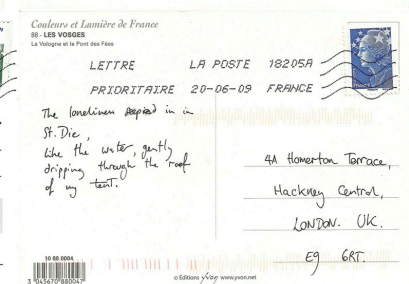 Couleurs et Lumière de France
88 - LES VOSGES
La Vologne et le Pont des Fées
LETTRE LA POSTE 18205A
PRIORITAIRE 20-06-09 FRANCE
The loneliness seeped in in
St. Die,
like the water, gently
dripping through the roof
of my tent.
4A Homerton Terrace,
Hackney Central,
LONDON. UK.
E9 6RT.
10 88.0004
3 045670 880047
© Editions yvon www.yvon.net